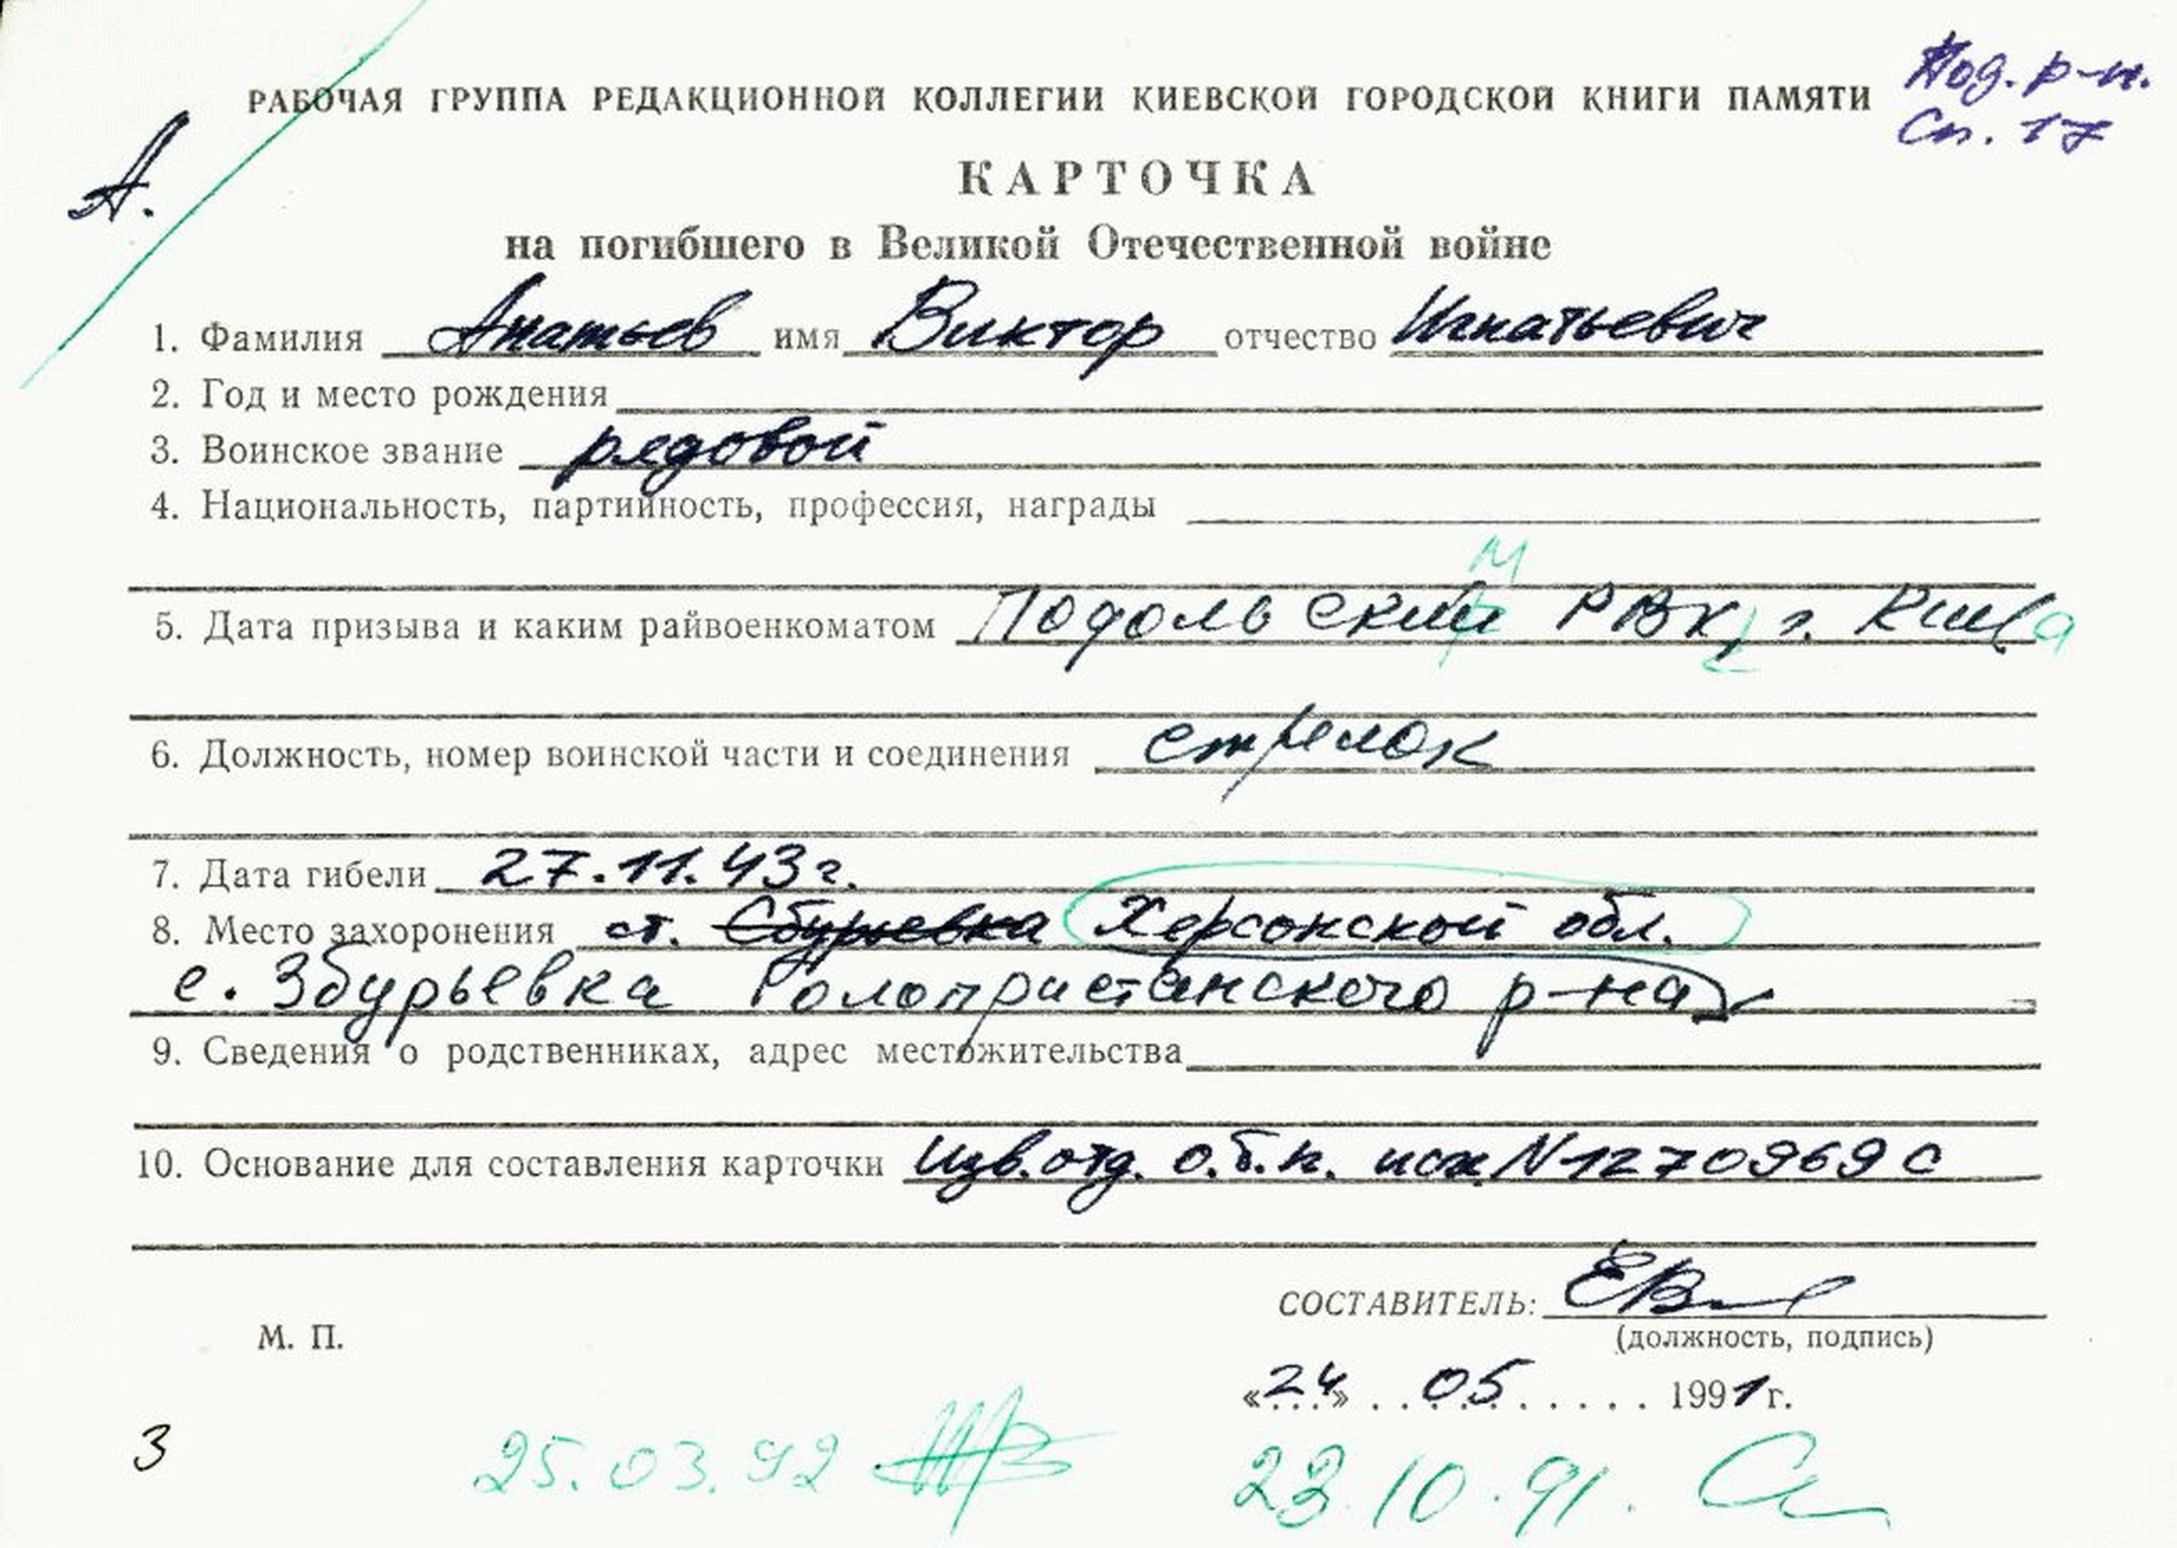 Под. р-н.
Сп. 17
РАБОЧАЯ ГРУППА РЕДАКЦИОННОЙ КОЛЛЕГИИ КИЕВСКОЙ ГОРОДСКОЙ КНИГИ ПАМЯТИ
А.
КАРТОЧКА
на погибшего в Великой Отечественной войне
1. Фамилия Апатьев имя Виктор отчество Игнатьевич
2. Год и место рождения
3. Воинское звание рядовой
4. Национальность, партийность, профессия, награды
м
5. Дата призыва и каким райвоенкоматом Подольский РВК, г. Киева
6. Должность, номер воинской части и соединения стрелок
7. Дата гибели 27.11.43г.
8. Место захоронения ст. Сбурьевка Херсонской обл.
с. Збурьевка Голопристанского р-на
9. Сведения о родственниках, адрес местожительства
10. Основание для составления карточки Изв. отд. о.б.п. исх. N1270969с
СОСТАВИТЕЛЬ:
(должность, подпись)
М. П.
«24» 05 1991г.
3
25.03.92
23.10.91.